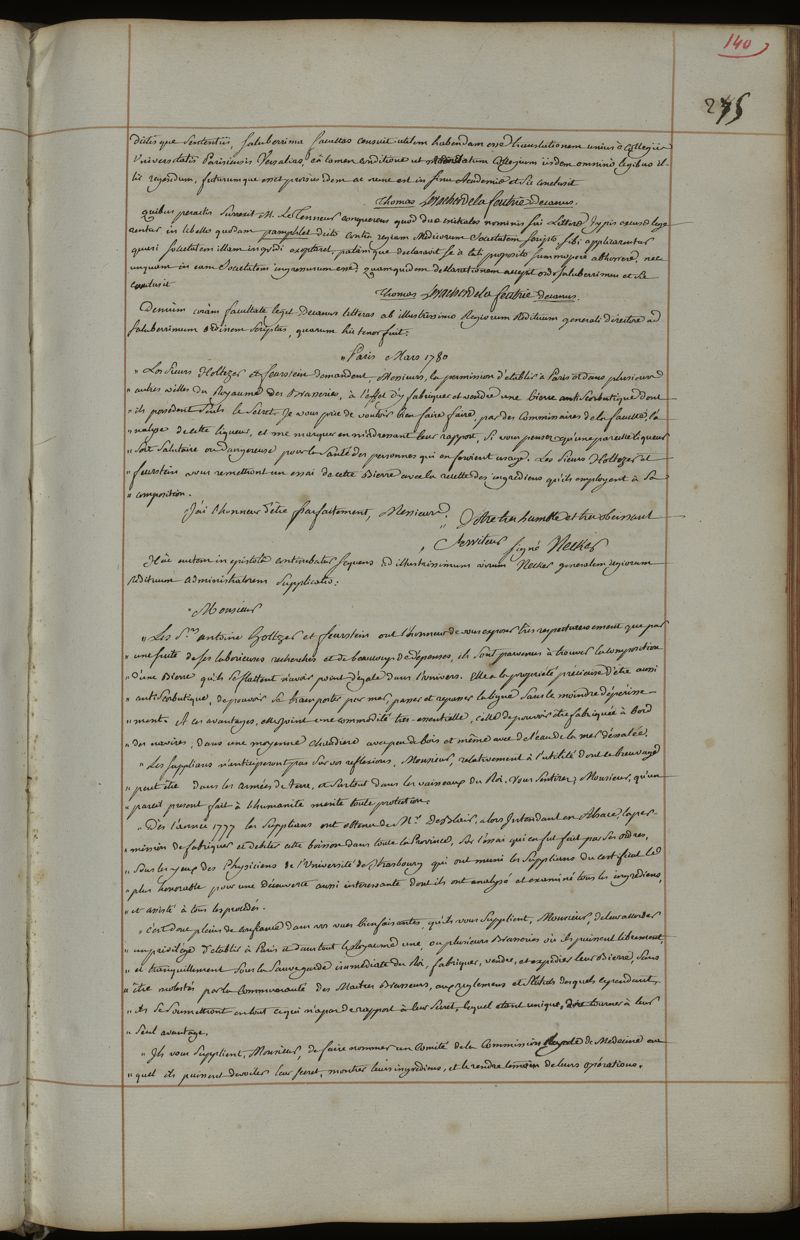 140
275
dictis que Sententiis, Saluberrima facultas censuit utilem habendam esse translationem unius è Collegiis
Universitatis Parisiensis Versalias, eâ tamen conditione ut Collegium iisdem omnino legibus il-
lic regendum, futurumque esset prorsus idem ac nunc est in sinu Academiæ et sic conclusit
Thomas Levacher de la feutrie Decanus.
Quibus peractis Surrexit M. Le Tenneur conquerens quod duæ initiales nominis sui Litteræ
in libello quodam pamphlet dicto contra regiam Medicorum Societatem scripto, sibi applicarentur
quasi Societatem illam ingredi exoptaret, palamque declaravit se à tali proposito summopere abhorrere, nec
unquam in eam Societatem ingressurum esse, quamquidem declarationem accepit ordo Saluberrimus et sic
conclusit
Thomas Levacher de la feutrie Decanus.
Demum coràm facultate legit Decanus litteras ab illustrissimo Regiorum Redituum generali directore ad
Saluberrimum ordinem Scriptas, quarum hic tenor fuit:
" Paris Mars 1780
" Les Sieurs Holtzer et feurstein demandent, Messieurs, la permission d'établir à Paris et dans plusieurs
" autres villes du Royaume des Brasseries, à l'effet d'y fabriquer et vendre une bierre antiscorbutique dont
" ils possèdent seuls le Secret. Je vous prie de vouloir bien faire faire, par des Commissaires de la faculté, l'a
" nalyse de cette liqueur, et me marquer en m'adressant leur rapport, si vous pensez qu'une pareille liqueur
" soit salutaire ou dangereuse pour la santé des personnes qui en feroient usage. Les Sieurs Holtzer et
" feurstein vous remettront un essai de cette Bierre avec la recette des ingrédiens qu'ils employent à sa
" composition.
J'ai l'honneur d'être parfaitement, Messieurs, Votre tres humble et tres obeissant
" Serviteur signé Necker
Hâc autem in epistolâ continebatur sequens ad illustrissimum virum Necker generalem regiorum
Redituum administratorem Supplicatio:
" Monsieur
" Les Srs. antoine holtzer et feurstein ont l'honneur de vous exposer très respectueusement que par
" une suite de ses laborieuses recherches et de beaucoup de dépenses, ils sont parvenus à trouver la composition
" d'une Bierre qu'ils se flattent n'avoir point d'égale dans l'univers. Elle a la propriété précieuse d'être aussi
" antiscorbutique, de pouvoir se transporter par mer, passer et repasser la ligne sans le moindre dépérisse-
" ment. A ces avantages, elle joint une commodité très-essentielle, celle de pouvoir être fabriquée à Bord
" des navires, dans une moyenne chaudiere avec peu de bois et même avec de l'eau de la mer dessalée.
" Les Supplians n'anticiperont pas sur vos reflexions, Monsieur, relativement à l'utilité dont ce breuvage
" peut être dans les armées de terre, et surtout dans les vaisseaux du Roi. Vous sentirez, Monsieur, qu'un
" pareil présent fait à l'humanité merite toute protection.
" Dès l'année 1777 les Supplians ont obtenu de Mr. De Blair, alors Intendant en Alsace, la per-
" mission de fabriquer et debiter cette boisson dans toute la Province, sur l'essai qui en fut fait par ses ordres,
" sous les yeux des Physiciens de l'Université de Strasbourg qui ont muni les Supplians du certificat le
" plus honorable pour une découverte aussi interessante dont ils ont analysé et examiné tous les ingrédiens,
" et assisté à tous les procédés.
" C'est donc pleins de confiance dans vos vues bienfaisantes, qu'ils vous Supplient, Monsieur, de leur accorder
" un privilège d'établir à Paris et dans tout le Royaume une, ou plusieurs Brasseries où ils puissent librement,
" et tranquillement sous la Sauvegarde immédiate du Roi, fabriquer, vendre, et expédier leur Bierre, sans
" être molestés par la Communauté des Maitres Brasseurs, aux reglemens et Statuts desquels cependant,
" ils se soumettront en tout ce qui n'a pas de rapport à leur Secret, lequel etant unique, doit tourner à leur
" seul avantage.
" Ils vous Supplient, Monsieur, de faire nommer un Comité de la Commission Royale de Medecine au
" quel ils puissent dévoiler leur secret, montrer leurs ingrédiens, et le rendre temoin de leurs opérations.